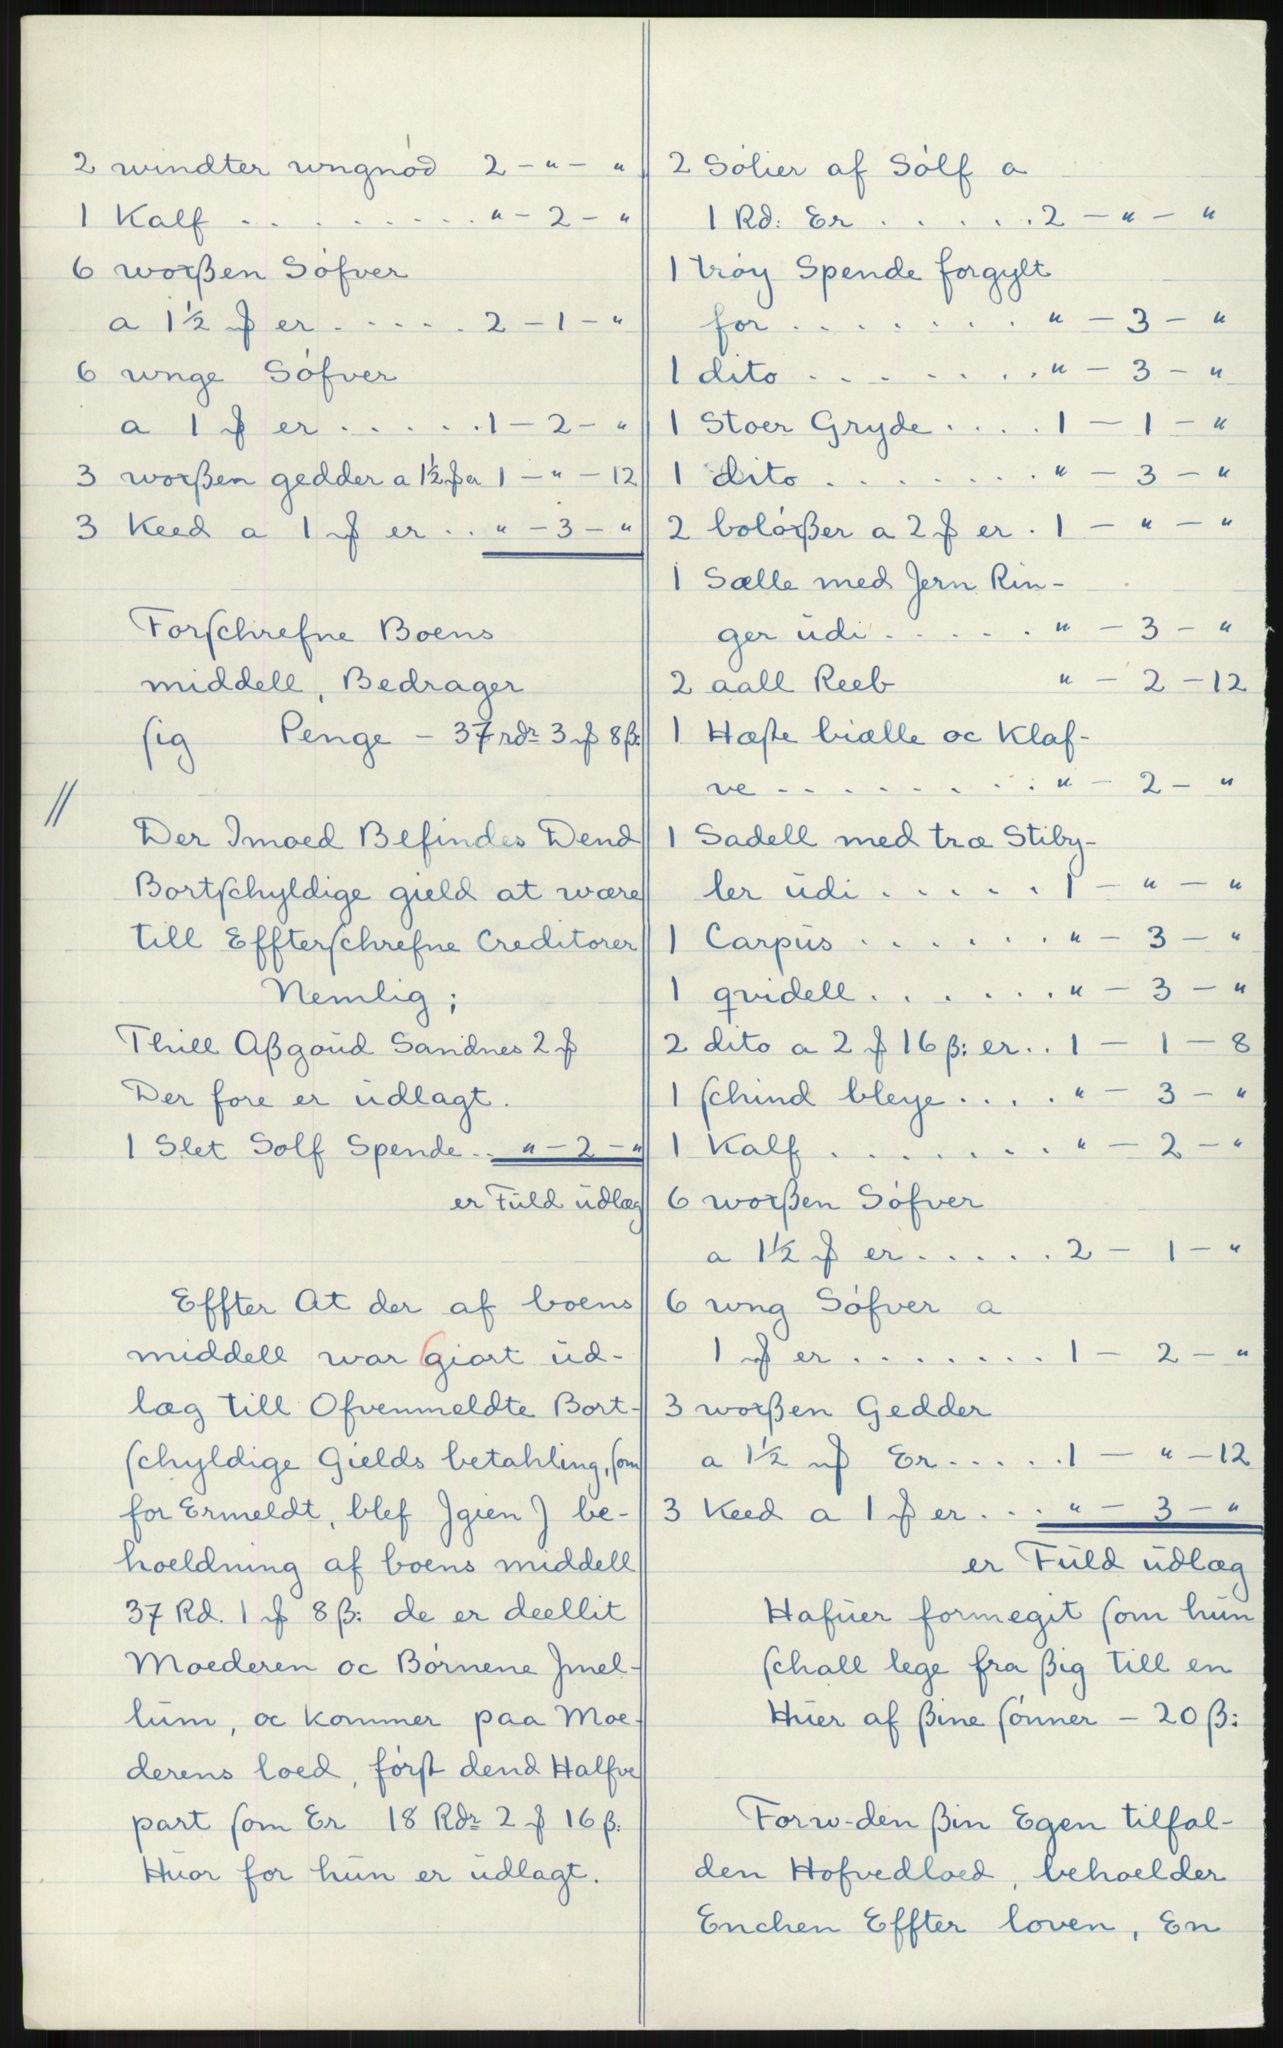 2 windter ungnód 2 - " - "
1 Kalf . . . . . . . . . " - 2 - "
6 woxßen Sófver
a 1½ ₰ er . . . . . 2 - 1 - "
6 unge Sófver
a 1 ₰ er . . . . . 1 - 2 - "
3 woxßen gedder a 1½ ₰ er 1 - " - 12
3 Keed a 1 ₰ er . . " - 3 - "
Forſchrefne Boens
middell, Bedrager
ſig Penge - 37 rdr 3 ₰ 8 ß:
//
Der Imoed Befindes Dend
Bortſchyldige gield at wære
till Effterſchrefne Creditorer
Nemlig;
Thill Aßgoŭd Sandnes 2 ₰
Der fore er ŭdlagt.
1 Slet Solf Spende . . " - 2 - "
er Fŭld ŭdlæg
Effter At der af boens
middell war giort ŭd-
læg till Ofvenmeldte Bort-
ſchyldige Gields betahling, ſom
for Ermeldt, blef Jgien J be-
hoeldning af boens middell
37 Rd. 1 ₰ 8 ß: de er deellit
Moederen oc Bórnene Jmel-
lŭm, oc kommer paa Moe-
derens loed, fórſt dend Halfve
part ſom Er 18 Rdr 2 ₰ 16 ß:
Hŭor for hŭn er ŭdlagt.
2 Sólier af Sólf a
1 Rd: Er . . . . . . 2 - " - "
1 tróy Spende forgylt
for . . . . . . . . " - 3 - "
1 dito . . . . . . . . " - 3 - "
1 Stoer Gryde . . . . 1 - 1 - "
1 dito . . . . . . . . " - 3 - "
2 bolóxßer a 2 ₰ er . 1 - " - "
1 Sælle med Jern Rin-
ger ŭdi . . . . . . " - 3 - "
2 aall Reeb " - 2 - 12
1 Hæſte biælle oc Klaf-
ve . . . . . . . . . " - 2 - "
1 Sadell med træ Stiby-
ler ŭdi . . . . . . 1 - " - "
1 Carpŭs . . . . . . . " - 3 - "
1 qvidell . . . . . . . " - 3 - "
2 dito a 2 ₰ 16 ß: er . . 1 - 1 - 8
1 ſchind bleye . . . . " - 3 - "
1 Kalf . . . . . . . . " - 2 - "
6 woxßen Sófver
a 1½ ₰ er . . . . . 2 - 1 - "
6 ung Sófver a
1 ₰ er . . . . . . . . 1 - 2 - "
3 woxßen Gedder
a 1½ ₰ Er . . . . . 1 - " - 12
3 Keed a 1 ₰ er . . . " - 3 - "
er Fŭld ŭdlæg
Hafŭer formegit ſom hŭn
ſchall lege fra ßig till en
Hŭer af ßine ſónner - 20 ß:
Forw-den ßin Egen tilfal-
den Hofvedloed, behoelder
Enchen Effter loven, En